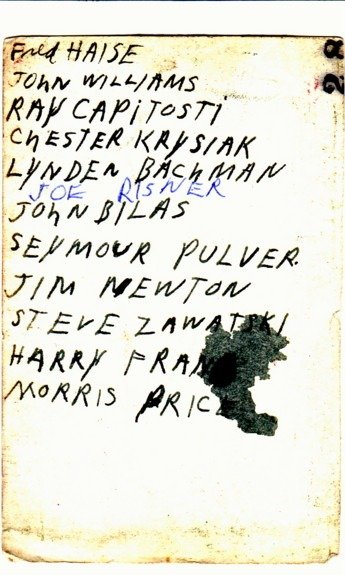 Fred HAISE
JOHN WILLIAMS
RAY CAPITOSTI
CHESTER KRYSIAK
LYNDEN BACHMAN
JOE RISNER
JOHN BILAS
SEYMOUR PULVER
JIM NEWTON
STEVE ZAWATSKI
HARRY
MORRIS PRICE
28